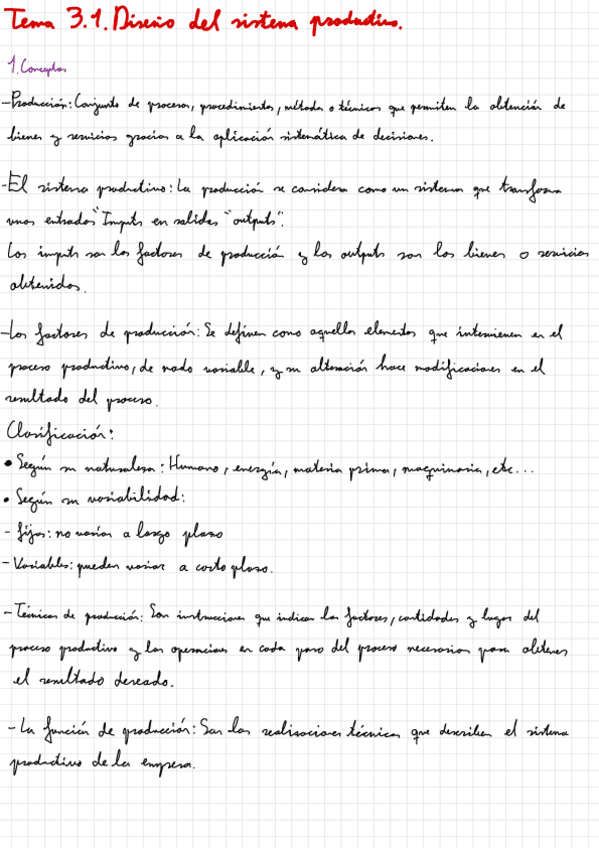 Tema 3.1. Diseño del sistema productivo.
1. Conceptos
-Producción: Conjunto de procesos, procedimientos, método o técnicas que permiten la obtención de
bienes y servicios gracias a la aplicación sistemática de decisiones.
-El sistema productivo: La producción se considera como un sistema que transforma
unas entradas "Inputs en salidas "outputs".
Los imputs son los factores de producción y los outputs son los bienes o servicios
obtenidos.
-Los factores de producción: Se definen como aquellos elementos que intervienen en el
proceso productivo, de modo variable, y su alteración hace modificaciones en el
resultado del proceso.
Clasificación:
• Según su naturaleza: Humano, energía, materia prima, maquinaria, etc...
• Según su variabilidad:
- Fijos: no varían a largo plazo
- Variables: pueden variar a corto plazo.
- Técnicas de producción: Son instrucciones que indican los factores, cantidades y lugar del
proceso productivo y las operaciones en cada paso del proceso necesarios para obtener
el resultado deseado.
- La función de producción: Son las realizaciones técnicas que describen el sistema
productivo de la empresa.